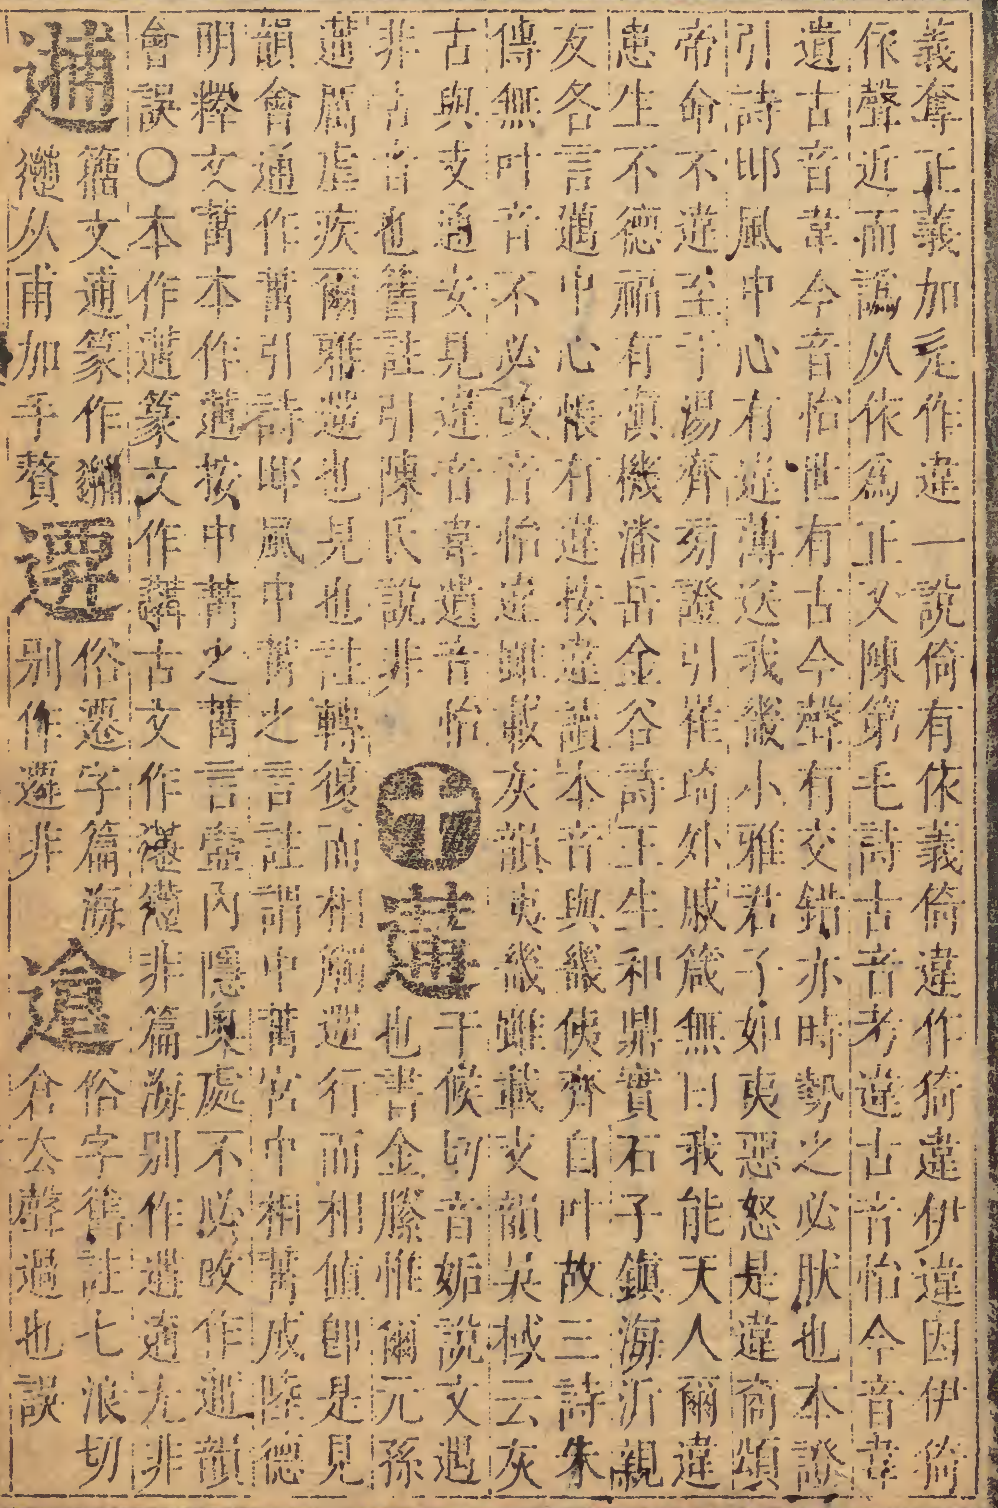 義奪正義加辵作違一說倚有依義倚違作猗違伊違因伊猗
依聲近而譌从依為正又陳第毛詩古音考違古音怡今音韋
遺古音韋今音怡世有古今聲有交錯亦時勢之必肰也本證
引詩邶風中心有違薄送我畿小雅君子如夷惡怒是違商頌
帝命不違至于湯齊旁證引崔琦外戚箴無曰我能天人爾違
患生不德禍有愼機潘岳金谷詩王生和鼎實石子鎮海沂親
友各言邁中心悵有違按違讀本音與畿俟齊自叶故三詩朱
傳無叶音不必改音怡違雖載灰韻夷畿雖載支韻吳棫云灰
古與支通安見違音韋遺音怡
非古音也舊註引陳氏說非
遘
干候切音姤說文遇
也書金縢惟爾元孫
遘厲虐疾爾雅遻也見也註轉復而相觸遻行而相值卽是見
韻會通作冓引詩鄘風中冓之言註謂中冓宮中相冓成陸德
明釋文冓本作遘按中冓之冓言宮內隱奧處不必改作遘韻
會誤〇本作遘篆文作古文作非篇海別作遘尢非
逋
籀文逋篆作
从甫加手贅
遷
俗遷字篇海
別作遷非
俗字舊註七浪切
倉去聲過也誤